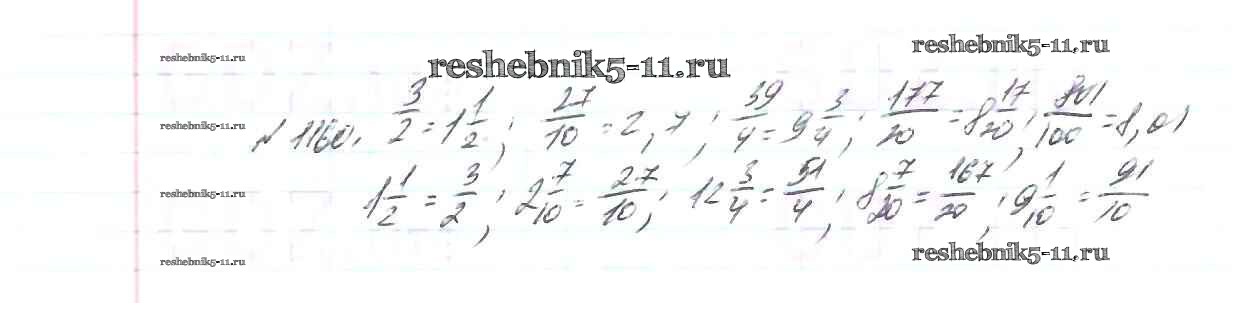 reshebnik5-11.ru
reshebnik5-11.ru
reshebnik5-11.ru
№ 1160. 3/2 = 1 1/2; 27/10 = 2,7; 39/4 = 9 3/4; 177/20 = 8 17/20; 801/100 = 8,01
reshebnik5-11.ru
1 1/2 = 3/2; 2 7/10 = 27/10; 12 3/4 = 51/4; 8 7/20 = 167/20; 9 1/10 = 91/10
reshebnik5-11.ru
reshebnik5-11.ru
reshebnik5-11.ru